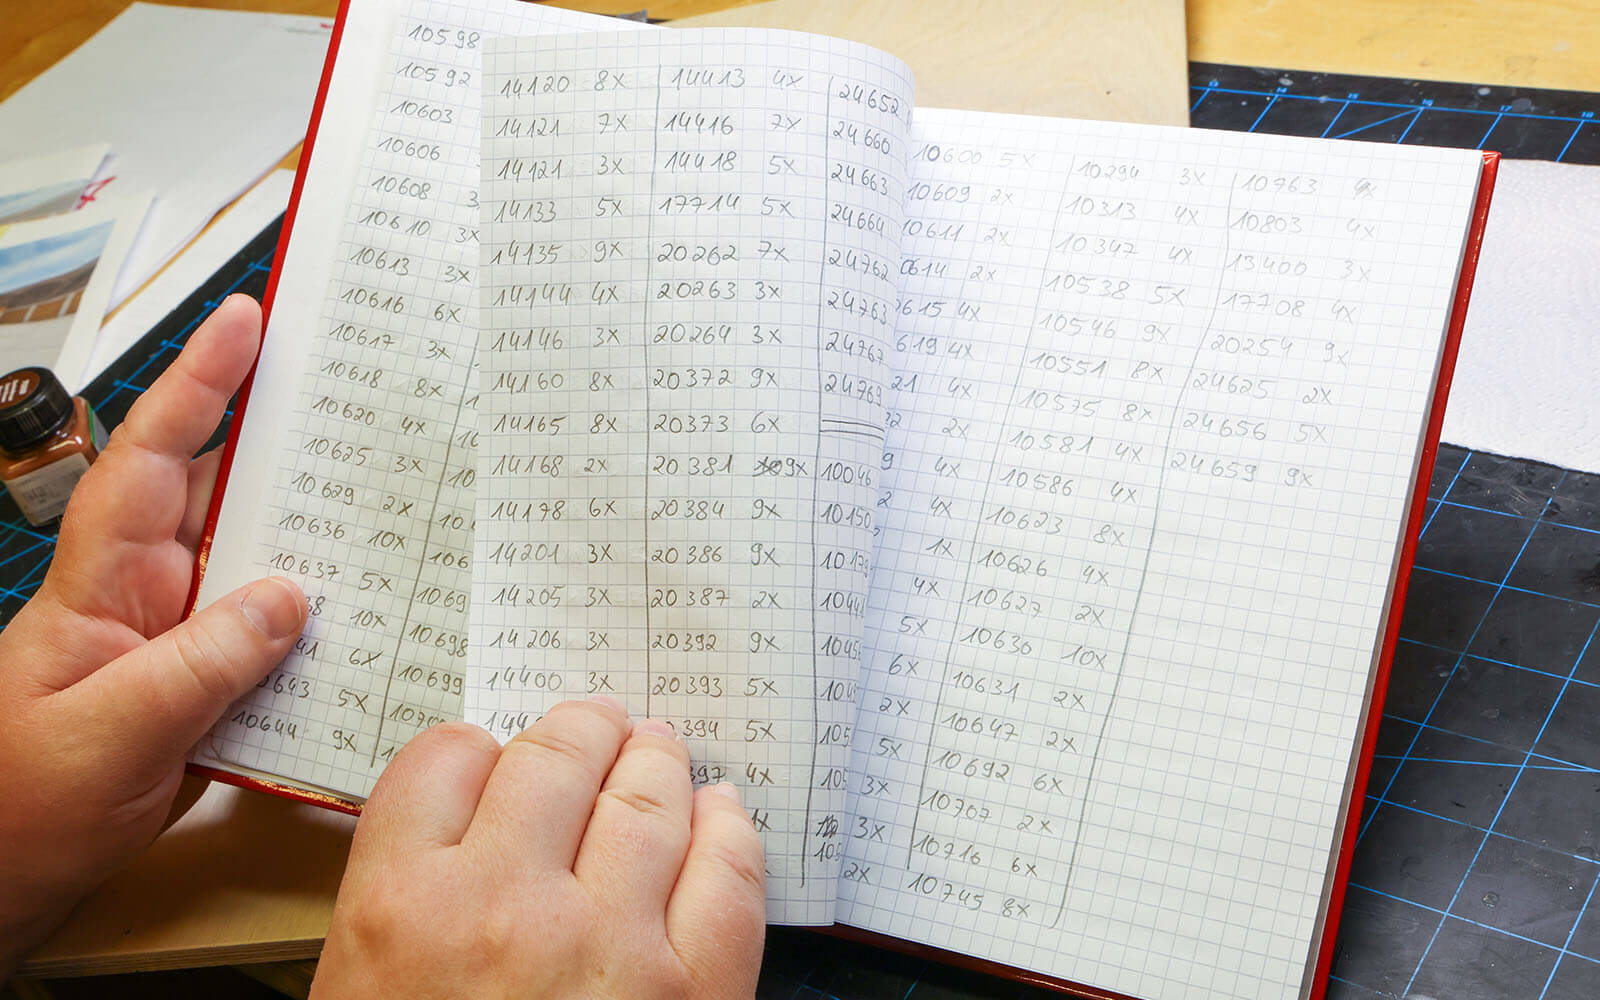 10598
10592
10603
10606
10608 3
10610 3x
10613 3x
10616 6x
10617 3x
10618 8x
10620 4x
10625 3x
10629 2x
10636 10x
10637 5x
38 10x
41 6x
0643 5x
10644 9x
10
10
106
1069
10698
10699
14120 8x
14121 7x
14121 3x
14133 5x
14135 9x
14144 4x
14146 3x
14160 8x
14165 8x
14168 2x
14178 6x
14201 3x
14205 3x
14206 3x
14400 3x
144
14413 4x
14416 7x
14418 5x
17714 5x
20262 7x
20263 3x
20264 3x
20372 9x
20373 6x
20381 9x
20384 9x
20386 9x
20387 2x
20392 9x
20393 5x
0394 5x
397 4x
1x
24652
24660
24663
24664
24762
24763
24767
24769
10046
10150
1017
1044
1045
104
105
105
105
10600 5x
10609 2x
10611 2x
0614 2x
0615 4x
619 4x
21 4x
2x
9 4x
2 4x
1x
4x
5x
6x
2x
5x
3x
3x
2x
10294 3x
10313 4x
10347 4x
10538 5x
10546 9x
10551 8x
10575 8x
10581 4x
10586 4x
10623 8x
10626 4x
10627 2x
10630 10x
10631 2x
10647 2x
10692 6x
10707 2x
10716 6x
10745 8x
10763 4x
10803 4x
13400 3x
17708 4x
20254 9x
24625 2x
24656 5x
24659 9x